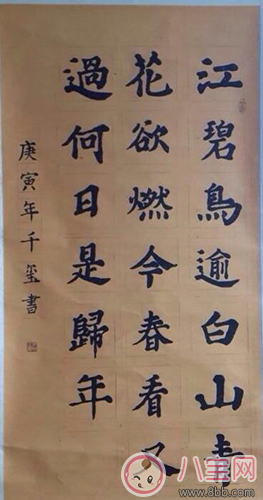 江碧鳥逾白山青
花欲燃今春看又
過何日是歸年
庚寅年千璽書
八宝网
www.8bb.com